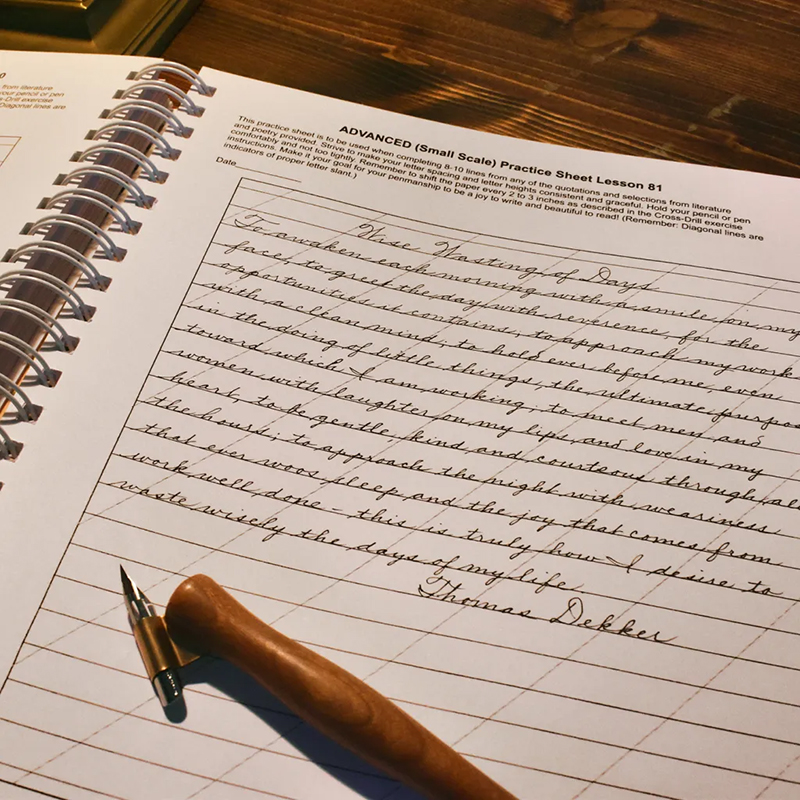 0
from literature
your pencil or pen
s-Drill exercise
Diagonal lines are
ADVANCED (Small Scale) Practice Sheet Lesson 81
This practice sheet is to be used when completing 8-10 lines from any of the quotations and selections from literature
and poetry provided. Strive to make your letter spacing and letter heights consistent and graceful. Hold your pencil or pen
comfortably and not too tightly. Remember to shift the paper every 2 to 3 inches as described in the Cross-Drill exercise
instructions. Make it your goal for your penmanship to be a joy to write and beautiful to read! (Remember: Diagonal lines are
indicators of proper letter slant.)
Date
Wise Wasting of Days
To awaken each morning with a smile on my
face; to greet the day with reverence, for the
opportunities it contains; to approach my work
with a clean mind; to hold ever before me, even
in the doing of little things, the ultimate purpos
toward which I am working; to meet men and
women with laughter on my lips, and love in my
heart, to be gentle, kind and courteous through all
the hours; to approach the night with weariness
that ever woos sleep and the joy that comes from
work well done - this is truly how I desire to
waste wisely the days of my life.
Thomas Dekker